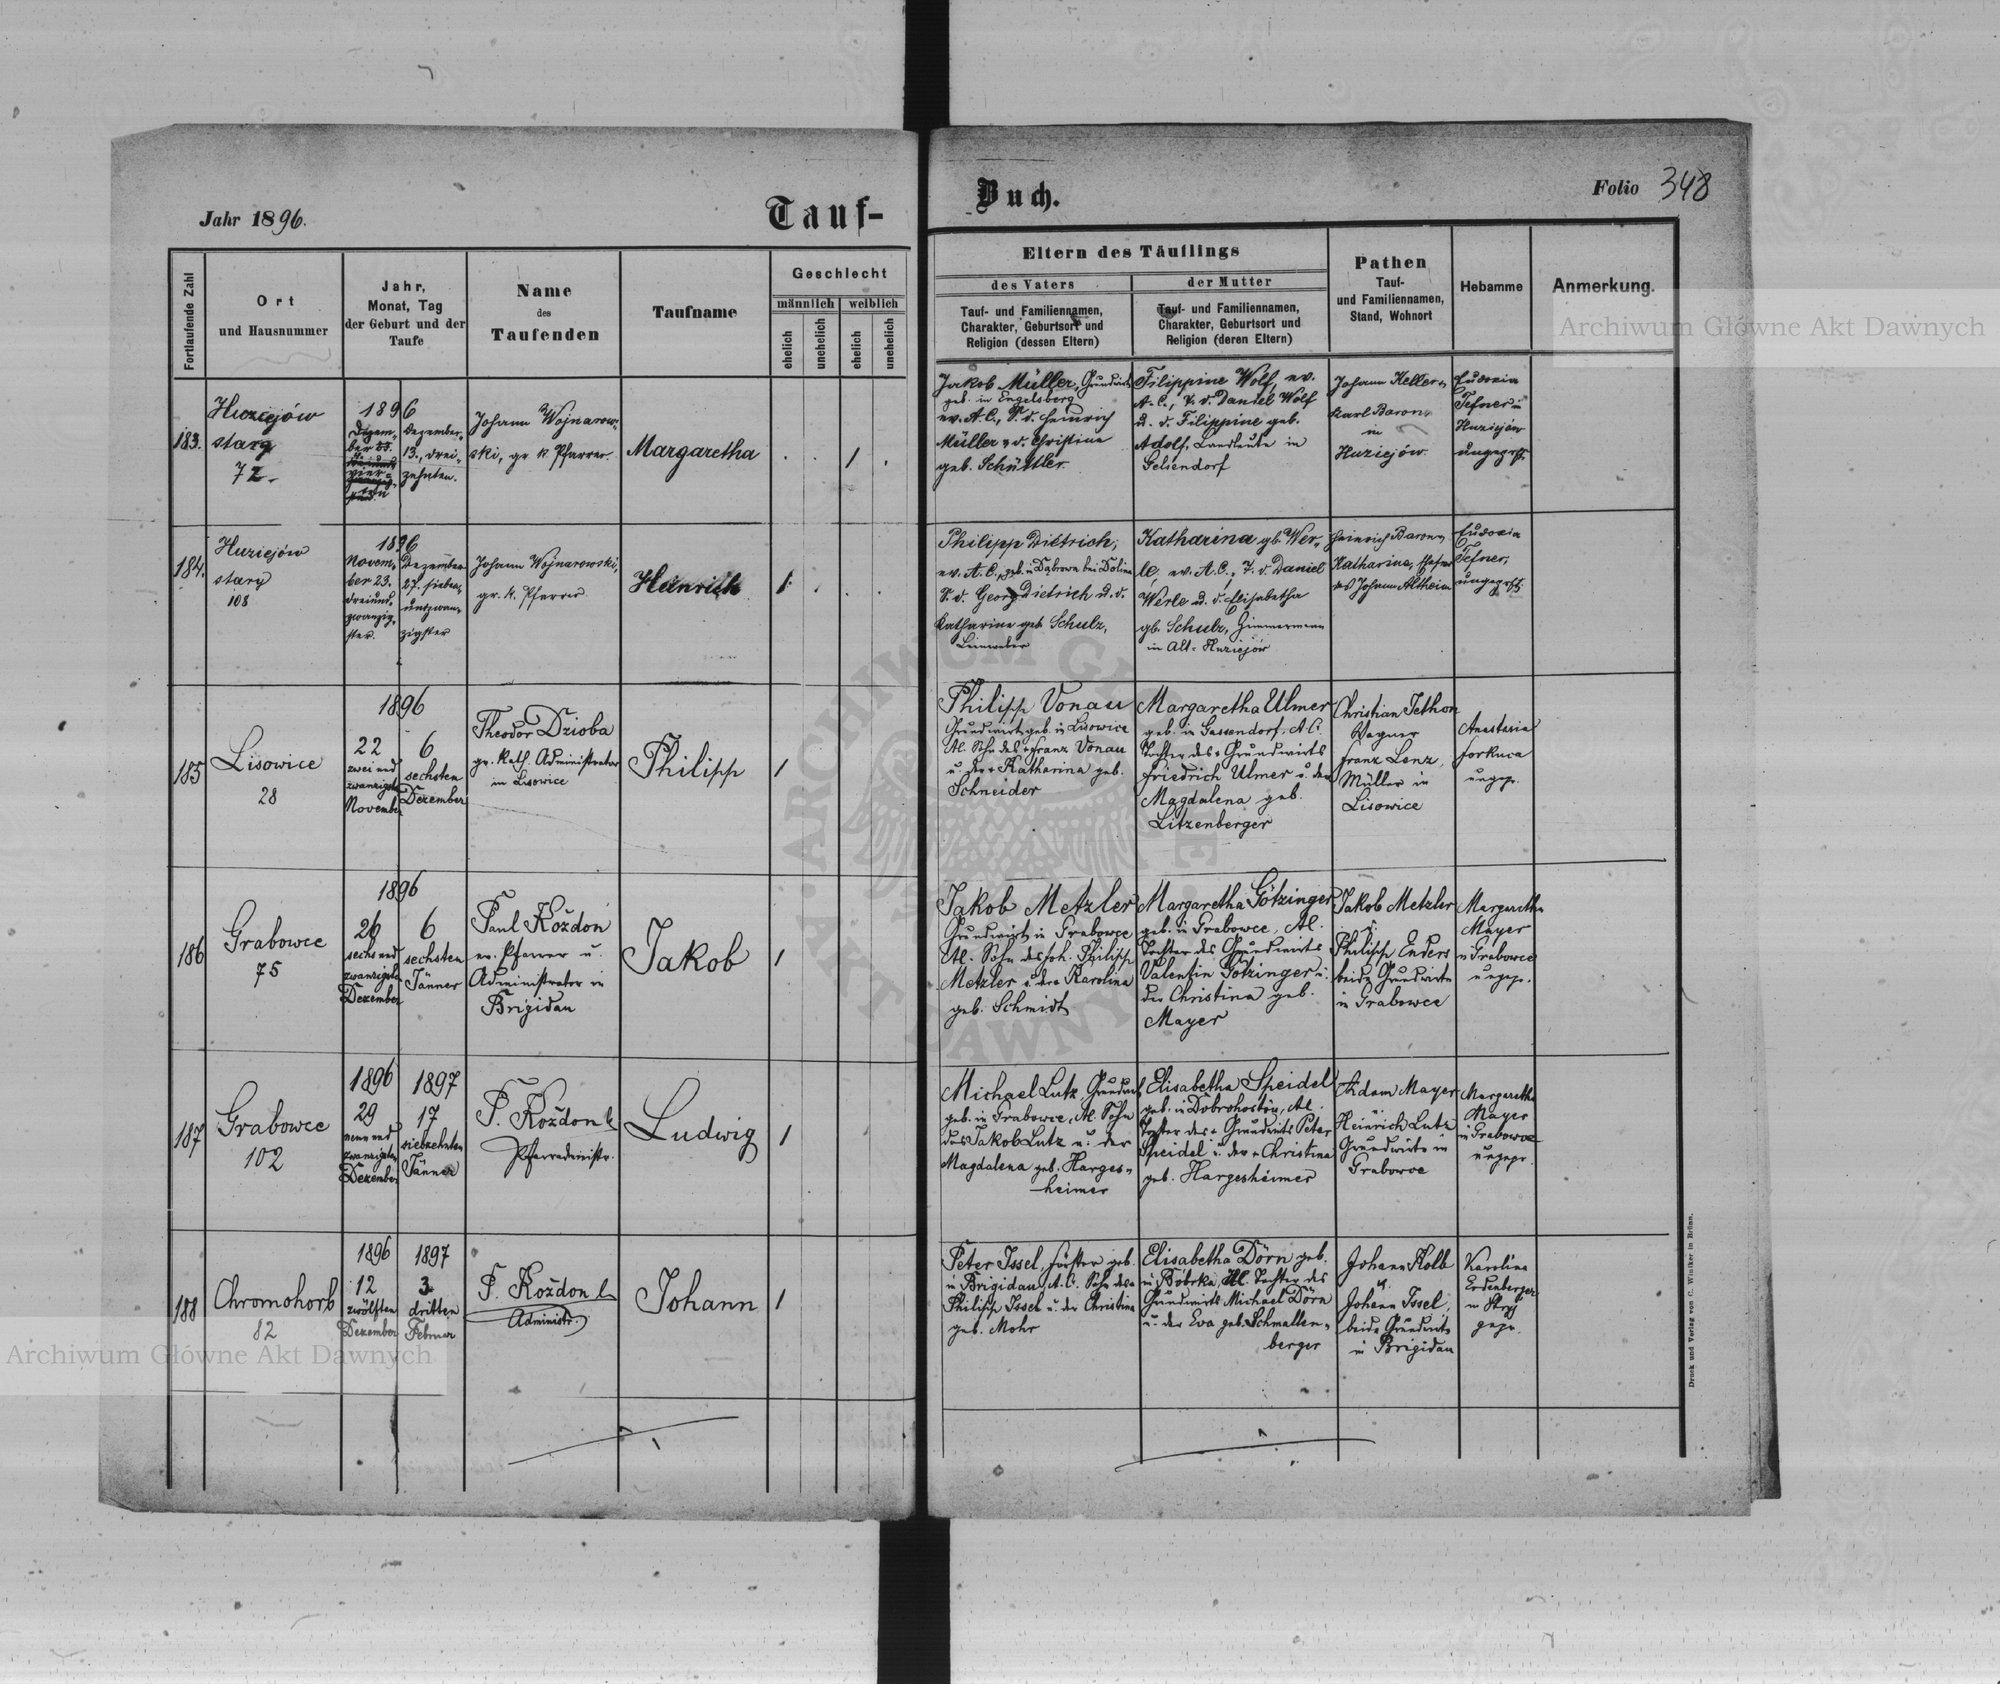 Jahr 1896.
Tauf-
Buch.
Folio 348
Fortlaufende Zahl
Ort
und Hausnummer
Jahr,
Monat, Tag
der Geburt und der
Taufe
Name
des
Taufenden
Taufname
Geschlecht
männlich
weiblich
ehelich
unehelich
ehelich
unehelich
Eltern des Täuflings
des Vaters
Tauf- und Familiennamen,
Charakter, Geburtsort und
Religion (dessen Eltern)
der Mutter
Tauf- und Familiennamen,
Charakter, Geburtsort und
Religion (deren Eltern)
Pathen
Tauf-
und Familiennamen,
Stand, Wohnort
Hebamme
Anmerkung.
Archiwum Główne Akt Dawnych
183.
Huziejów
stary
72.
1896
Dezem-
ber
Dezember
13., drei-
zehnten.
Johann Wojnarow-
ski, gr. k. Pfarrer.
Margaretha
1
Jakob Müller, Grundwirt
geb. in Engelsberg
ev. A. C., S. d. Heinrich
Müller u. d. Christine
geb. Schüttler.
Filippine Wolf, ev.
A. C., T. d. Daniel Wolf
u. d. Filippine geb.
Adolf, Landleute in
Gelsendorf
Johann Keller u
Karl Baron
in
Huziejów.
Eudoxia
Tefner in
Huziejów
ungeprft.
184.
Huziejów
stary
108
1896
Novem-
ber 23.
dreiund-
zwanzig-
ster.
Dezember
27. sieben-
undzwan-
zigster
Johann Wojnarowski,
gr. k. Pfarrer
Heinrich
1
Philipp Dietrich,
ev. A. C., geb. in Dąbrowa bei Dolina
S. d. Georg Dietrich u. d.
Katharine geb. Schulz,
Leinweber
Katharina gb. Wer-
le, ev. A. C., T. d. Daniel
Werle u. d. Elisabetha
gb. Schulz, Zimmermann
in Alt-Huziejów
Heinrich Baron u
Katharine,
des Johann Altheim
Eudoxia
Tefner,
ungeprft.
185
Lisowice
28
1896
22
zwei und
zwanzigsten
November
6
sechsten
Dezember
Theodor Dzioba
gr. kath. Administrator
in Lisowice
Philipp
1
Philipp Vonau
Grundwirt, geb. in Lisowice
AC. Sohn des + Franz Vonau
u. der + Katharina geb.
Schneider
Margaretha Ulmer
geb. in Gassendorf, A.C.
Tochter des + Grundwirts
Friedrich Ulmer u. der
Magdalena geb.
Litzenberger
Christian Jethon
Wagner
Franz Lenz,
Müller in
Lisowice
Anastasia
Forkuca
ungepr.
186
Grabowce
75
1896
26
sechs und
zwanzigsten
Dezember
6
sechsten
Jänner
Paul Koždoń
ev. Pfarrer u.
Administrator in
Brigidau
Jakob
1
Jakob Metzler
Grundwirt in Grabowce
AC. Sohn des Joh. Philipp
Metzler u. der Karolina
geb. Schmidt
Margaretha Götzinger
geb. in Grabowce, AC.
Tochter des Grundwirts
Valentin Götzinger u.
der Christina geb.
Mayer
Jakob Metzler
u.
Philipp Enders
beide Grundwirte
in Grabowce
Margaretha
Mayer
in Grabowce
ungepr.
187
Grabowce
102
1896
29
neun und
zwanzigsten
Dezember
1897
17
siebzehnten
Jänner
P. Koždoń
Pfarradministr.
Ludwig
1
Michael Lutz, Grundwirt
geb. in Grabowce, AC. Sohn
des Jakob Lutz u. der
Magdalena geb. Harges-
heimer
Elisabetha Speidel
geb. in Dobrohostów, AC.
Tochter des + Grundwirts Peter
Speidel u. der + Christina
geb. Hargesheimer
Adam Mayer
u.
Heinrich Lutz
Grundwirte in
Grabowce
Margaretha
Mayer
in Grabowce
ungepr.
188
Chromohorb
82
1896
12
zwölften
Dezember
1897
3
dritten
Februar
P. Koždoń
Administr.
Johann
1
Peter Issel, Förster geb.
in Brigidau, A.C. Sohn des
Philipp Issel u. der Christina
geb. Mohr
Elisabetha Dörn geb.
in Bóbrka, AC. Tochter des
Grundwirts Michael Dörn
u. der Eva geb. Schmallen-
berger
Johann Kolb
u.
Johann Issel,
beide Grundwirte
in Brigidau
Karolina
Erdenberger
in Stryj
gepr.
Archiwum Główne Akt Dawnych
ARCHIWUM GŁÓWNE AKT DAWNYCH
Druck und Verlag von C. Winiker in Brünn.